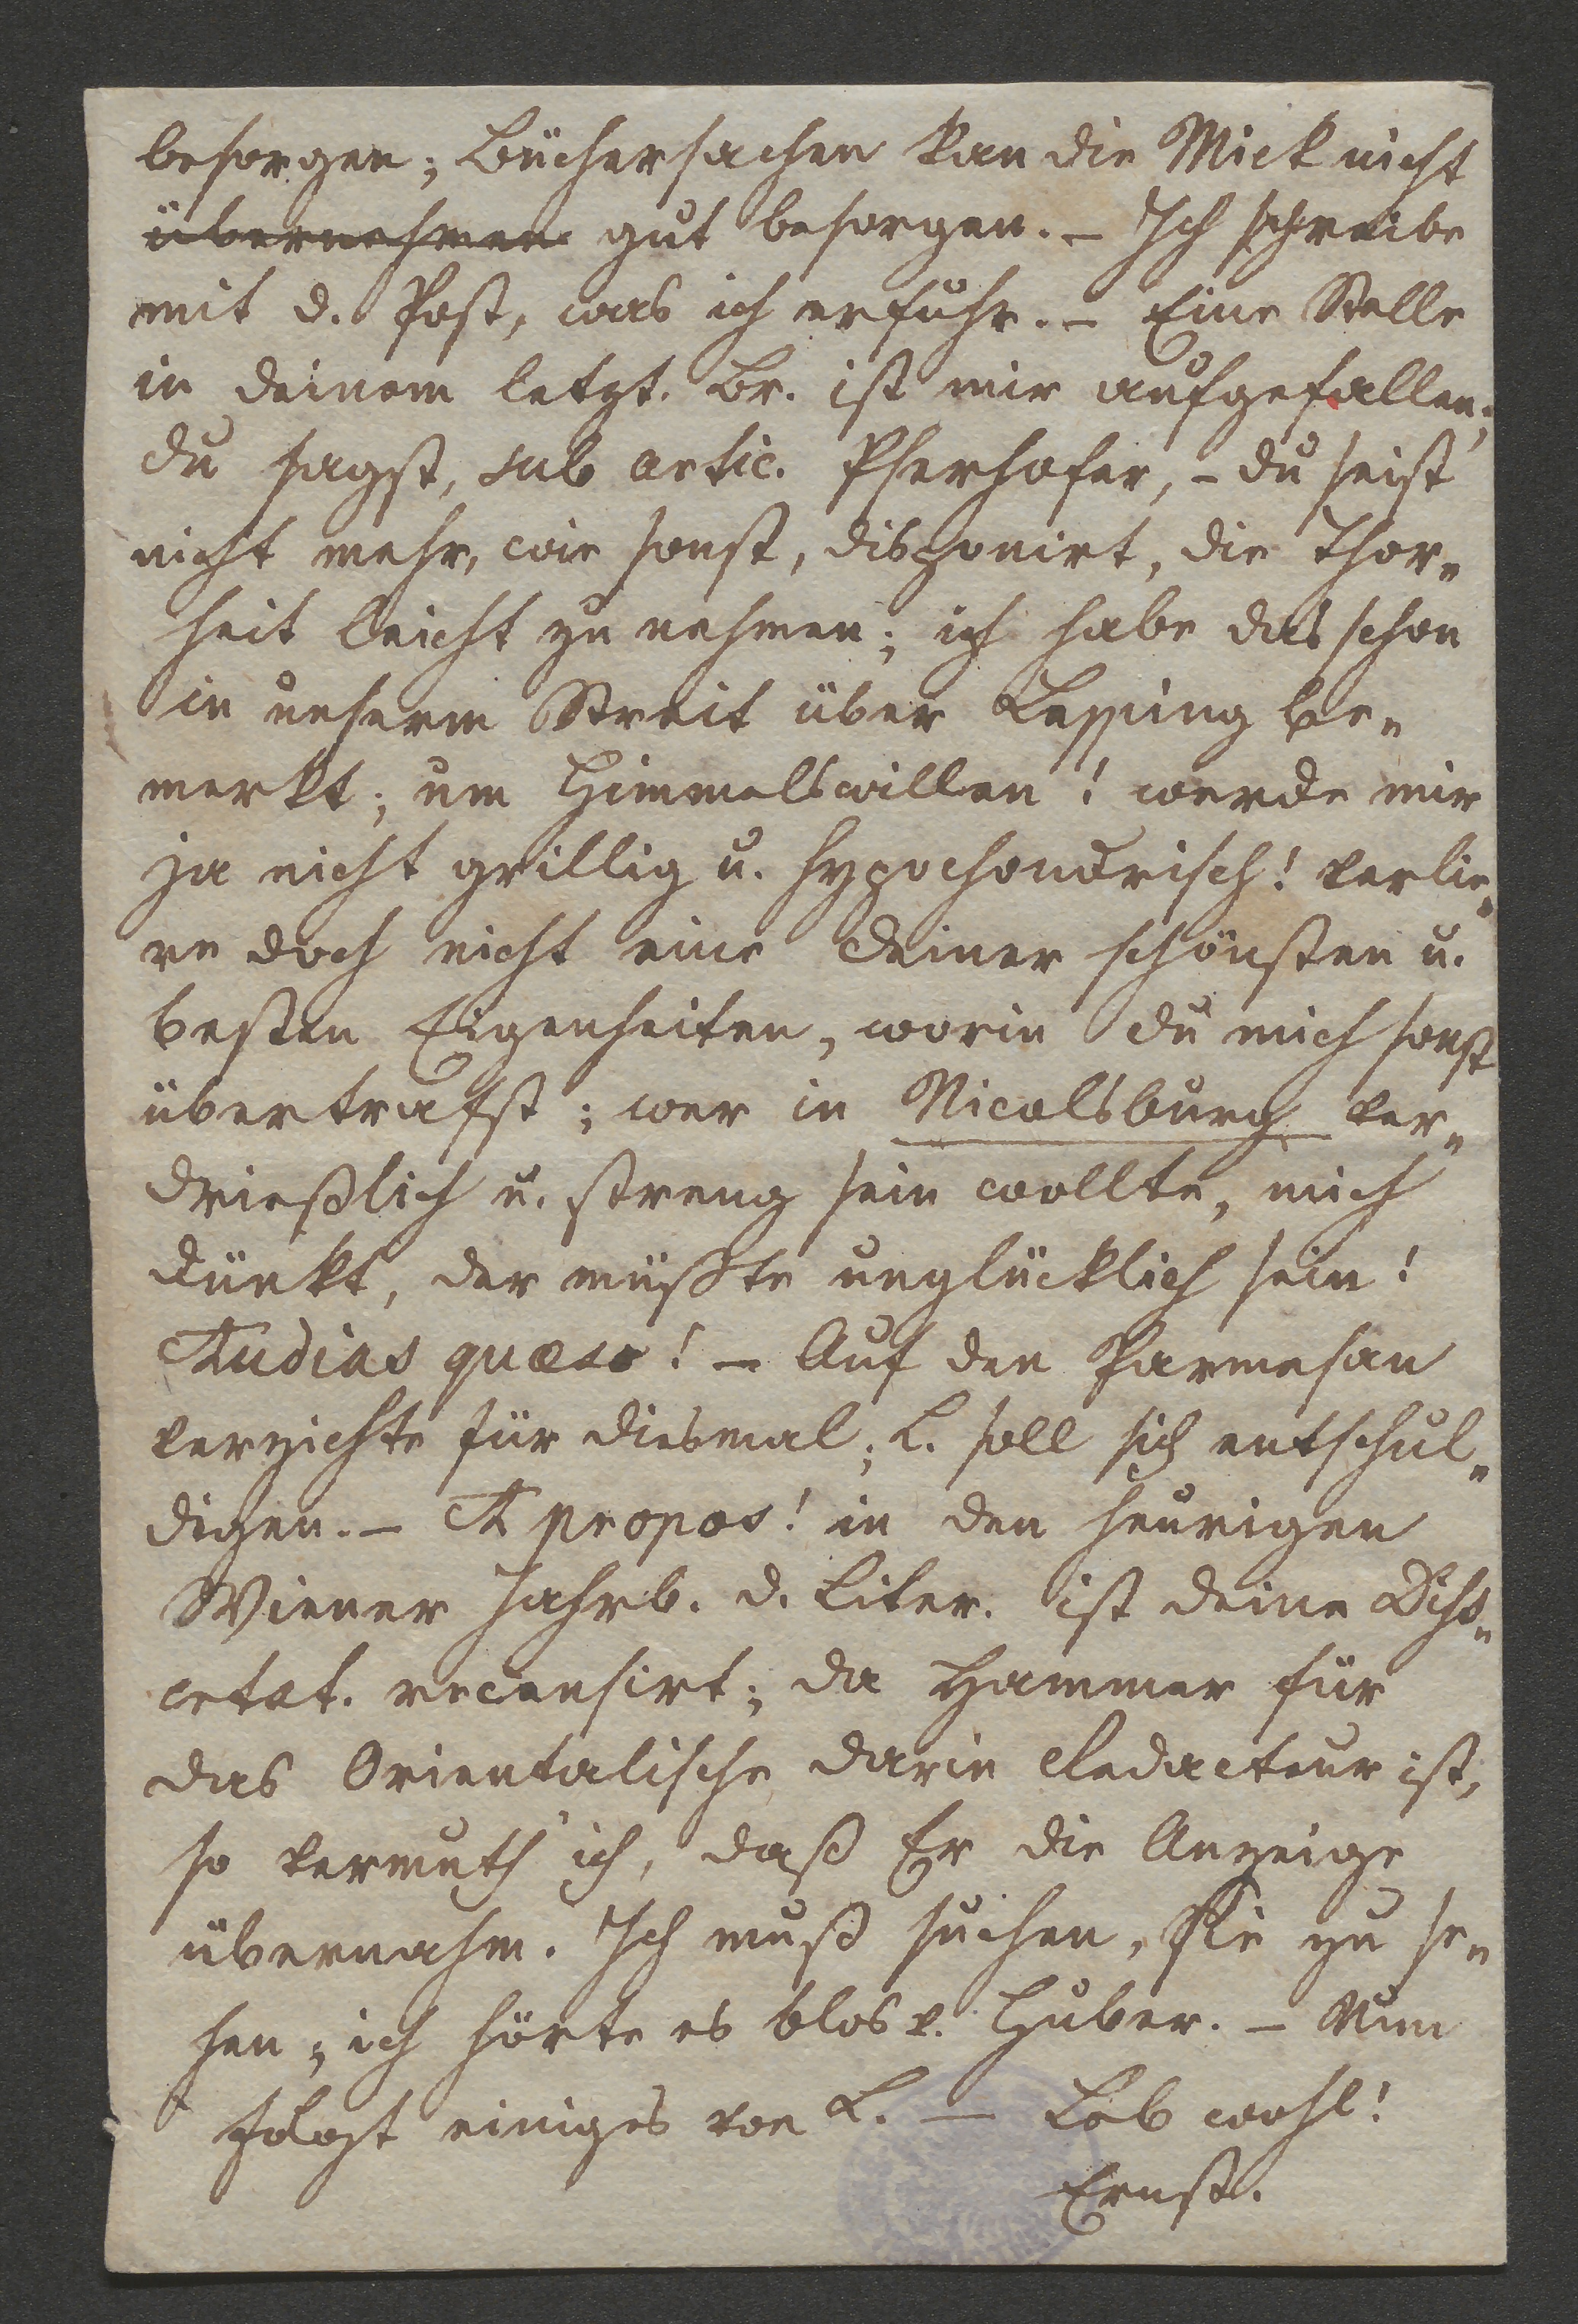 besorgen; Büchersachen kan die Mick nicht
übernehmen gut besorgen. – Ich schreibe
mit d. Post, was ich erfuhr. – Eine Stelle
in deinem letzt. Br. ist mir aufgefallen;
du sagst, sub artic. Pserhofer, – du seist
nicht mehr, wie sonst, disponirt, die Thor„
heit leicht zu nehmen; ich habe das schon
in unserm Streit über Lessing be„
merkt; um Himmelswillen! werde mir
ja nicht grillig u. hypochondrisch! verlie„
re doch nicht eine deiner schönsten u.
besten Eigenheiten, worin du mich sonst
übertrafst; wer in Nicolsburg ver„
drießlich u. streng sein wollte, mich
dünkt, der müßte unglücklich sein!
Audias quæso! – Auf den Parmesan
verzichte für diesmal; L. soll sich entschul„
digen. – A propos! in den heurigen
Wiener Jahrb. d. Liter. ist deine
recensirt; da Hammer für
das Orientalische darin Redacteur ist,
so vermuth' ich, daß Er die Anzeige
übernahm. Ich muß suchen, sie zu se„
hen; ich hörte es blos v. Huber. – Nun
folgt einiges von L. – Leb wohl!
Ernst.